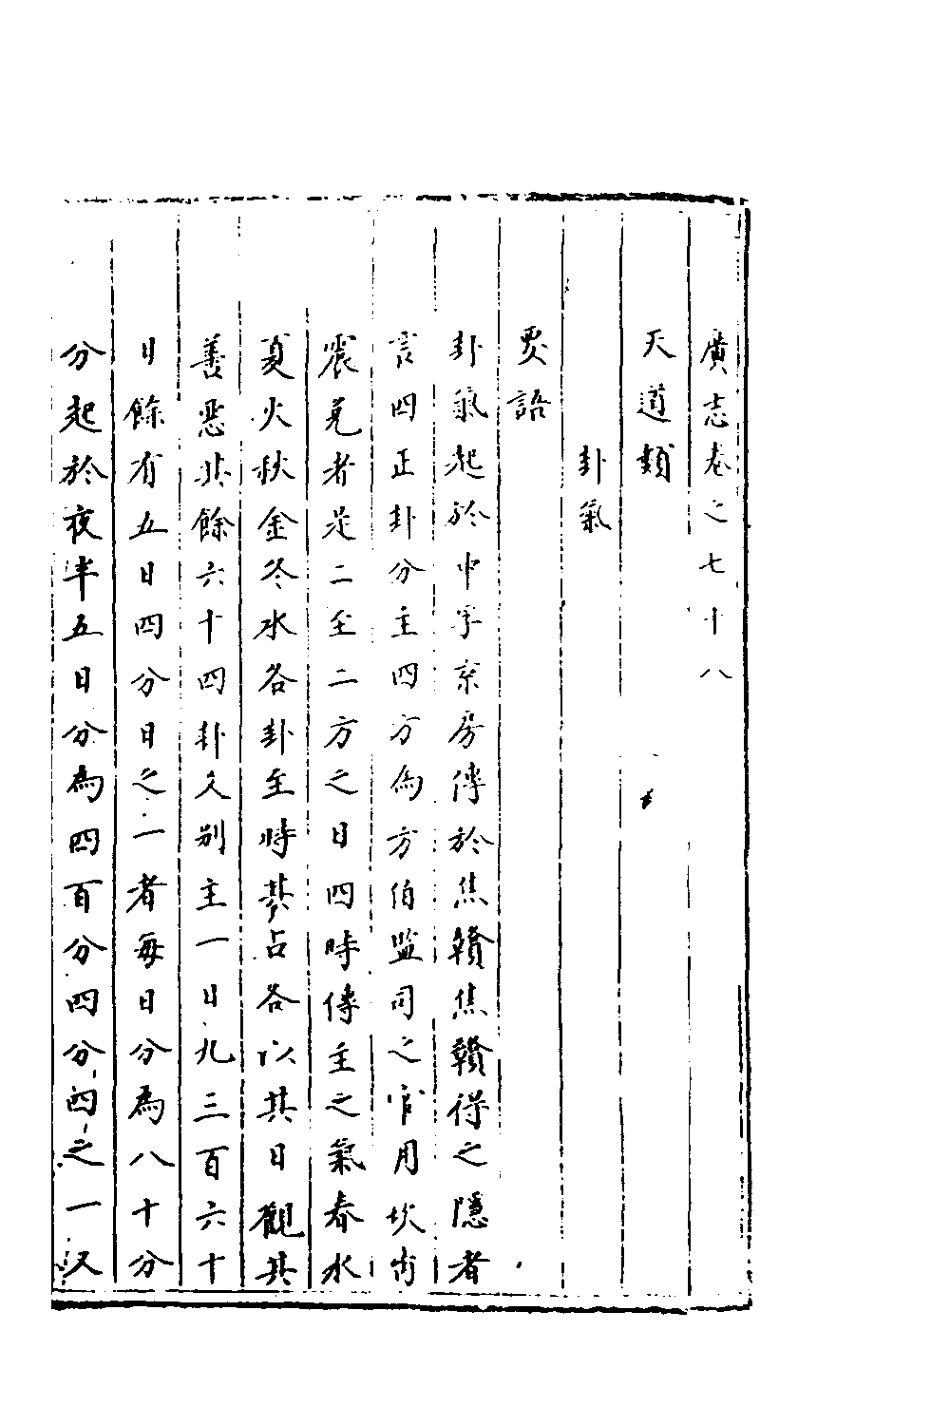 廣志卷之七十八
天道類
卦氣
要語
卦氣起於中孚京房傳於焦贛焦贛得之隱者
言四正卦分主四方為方伯監司之官用坎离
震兌者是二至二方之日四時傳主之氣春水
夏火秋金冬水各卦主時其占各以其日觀其
善惡其餘六十四卦久别主一日九三百六十
日餘有五日四分日之一者每日分為八十分
分起於夜半五日分為四百分四分四之一又